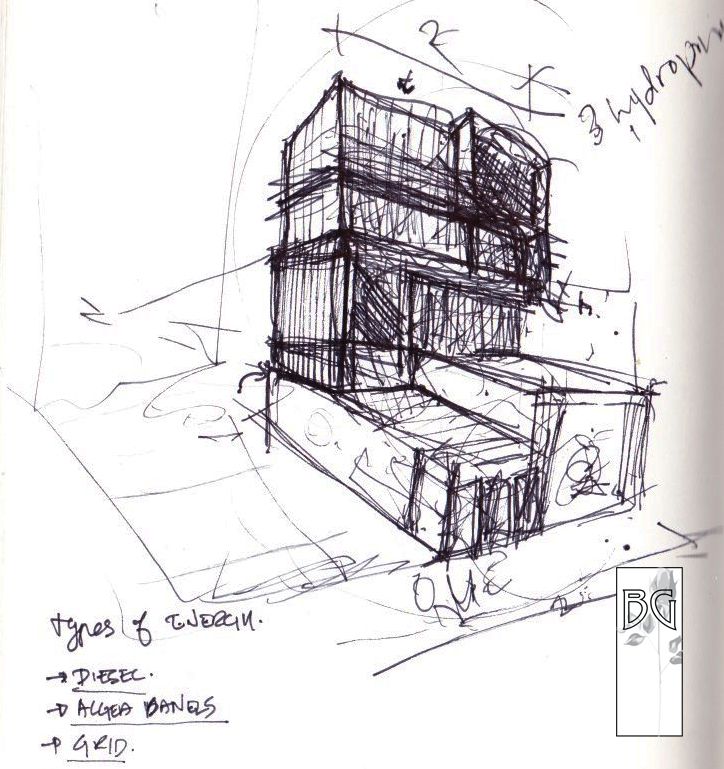 2
3 hydropon
types of ENERGY.
→ DIESEL.
→ ALGEA PANELS
→ GRID.
BG